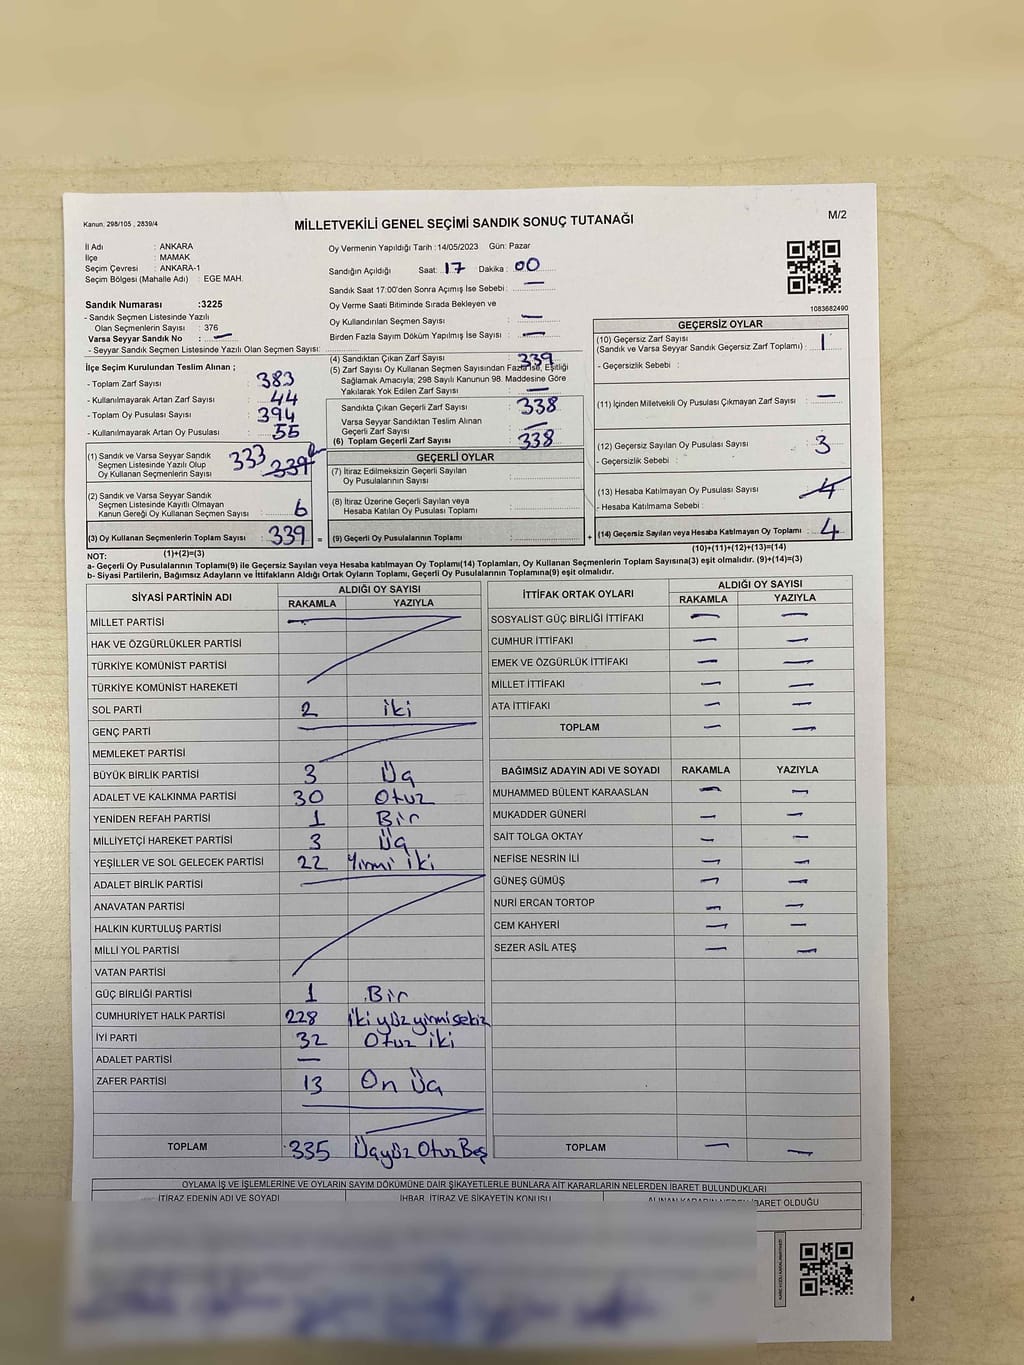 Kanun, 298/105 , 2839/4
MİLLETVEKİLİ GENEL SEÇİMİ SANDIK SONUÇ TUTANAĞI
M/2
İl Adı : ANKARA
İlçe : MAMAK
Seçim Çevresi : ANKARA-1
Seçim Bölgesi (Mahalle Adı) : EGE MAH.
Sandık Numarası :3225
- Sandık Seçmen Listesinde Yazılı
Olan Seçmenlerin Sayısı : 376
Varsa Seyyar Sandık No : —
- Seyyar Sandık Seçmen Listesinde Yazılı Olan Seçmen Sayısı:
Oy Vermenin Yapıldığı Tarih :14/05/2023 Gün: Pazar
Sandığın Açıldığı Saat: 17 Dakika : 00
Sandık Saat 17:00'den Sonra Açımış İse Sebebi : —
Oy Verme Saati Bitiminde Sırada Bekleyen ve
Oy Kullandırılan Seçmen Sayısı : —
Birden Fazla Sayım Döküm Yapılmış İse Sayısı : —
1083682490
İlçe Seçim Kurulundan Teslim Alınan ;
- Toplam Zarf Sayısı : 383
- Kullanılmayarak Artan Zarf Sayısı : 44
- Toplam Oy Pusulası Sayısı : 394
- Kullanılmayarak Artan Oy Pusulası : 55
(1) Sandık ve Varsa Seyyar Sandık
Seçmen Listesinde Yazılı Olup
Oy Kullanan Seçmenlerin Sayısı : 333 339
(2) Sandık ve Varsa Seyyar Sandık
Seçmen Listesinde Kayıtlı Olmayan
Kanun Gereği Oy Kullanan Seçmen Sayısı : 6
(3) Oy Kullanan Seçmenlerin Toplam Sayısı : 339 =
(4) Sandıktan Çıkan Zarf Sayısı : 339
(5) Zarf Sayısı Oy Kullanan Seçmen Sayısından Fazla İse, Eşitliği
Sağlamak Amacıyla, 298 Sayılı Kanunun 98. Maddesine Göre
Yakılarak Yok Edilen Zarf Sayısı : —
Sandıkta Çıkan Geçerli Zarf Sayısı : 338
Varsa Seyyar Sandıktan Teslim Alınan
Geçerli Zarf Sayısı : —
(6) Toplam Geçerli Zarf Sayısı : 338
GEÇERLİ OYLAR
(7) İtiraz Edilmeksizin Geçerli Sayılan
Oy Pusulalarının Sayısı :
(8) İtiraz Üzerine Geçerli Sayılan veya
Hesaba Katılan Oy Pusulası Toplamı :
(9) Geçerli Oy Pusulalarının Toplamı : +
GEÇERSİZ OYLAR
(10) Geçersiz Zarf Sayısı
(Sandık ve Varsa Seyyar Sandık Geçersiz Zarf Toplamı) : 1
- Geçersizlik Sebebi :
(11) İçinden Milletvekili Oy Pusulası Çıkmayan Zarf Sayısı : —
(12) Geçersiz Sayılan Oy Pusulası Sayısı : 3
- Geçersizlik Sebebi :
(13) Hesaba Katılmayan Oy Pusulası Sayısı : 4
- Hesaba Katılmama Sebebi :
(14) Geçersiz Sayılan veya Hesaba Katılmayan Oy Toplamı : 4
NOT: (1)+(2)=(3) (10)+(11)+(12)+(13)=(14)
a- Geçerli Oy Pusulalarının Toplamı(9) ile Geçersiz Sayılan veya Hesaba Katılmayan Oy Toplamı(14) Toplamları, Oy Kullanan Seçmenlerin Toplam Sayısına(3) eşit olmalıdır. (9)+(14)=(3)
b- Siyasi Partilerin, Bağımsız Adayların ve İttifakların Aldığı Ortak Oyların Toplamı, Geçerli Oy Pusulalarının Toplamına(9) eşit olmalıdır.
SİYASİ PARTİNİN ADI ALDIĞI OY SAYISI
RAKAMLA YAZIYLA
MİLLET PARTİSİ —
HAK VE ÖZGÜRLÜKLER PARTİSİ
TÜRKİYE KOMÜNİST PARTİSİ
TÜRKİYE KOMÜNİST HAREKETİ
SOL PARTİ 2 iki
GENÇ PARTİ
MEMLEKET PARTİSİ
BÜYÜK BİRLİK PARTİSİ 3 Üç
ADALET VE KALKINMA PARTİSİ 30 Otuz
YENİDEN REFAH PARTİSİ 1 Bir
MİLLİYETÇİ HAREKET PARTİSİ 3 Üç
YEŞİLLER VE SOL GELECEK PARTİSİ 22 Yirmi iki
ADALET BİRLİK PARTİSİ
ANAVATAN PARTİSİ
HALKIN KURTULUŞ PARTİSİ
MİLLİ YOL PARTİSİ
VATAN PARTİSİ
GÜÇ BİRLİĞİ PARTİSİ 1 Bir
CUMHURİYET HALK PARTİSİ 228 iki yüz yirmi sekiz
İYİ PARTİ 32 Otuz iki
ADALET PARTİSİ —
ZAFER PARTİSİ 13 On Üç
TOPLAM 335 Üçyüz Otuz Beş
İTTİFAK ORTAK OYLARI ALDIĞI OY SAYISI
RAKAMLA YAZIYLA
SOSYALİST GÜÇ BİRLİĞİ İTTİFAKI — —
CUMHUR İTTİFAKI — —
EMEK VE ÖZGÜRLÜK İTTİFAKI — —
MİLLET İTTİFAKI — —
ATA İTTİFAKI — —
TOPLAM — —
BAĞIMSIZ ADAYIN ADI VE SOYADI RAKAMLA YAZIYLA
MUHAMMED BÜLENT KARAASLAN — —
MUKADDER GÜNERİ — —
SAİT TOLGA OKTAY — —
NEFİSE NESRİN İLİ — —
GÜNEŞ GÜMÜŞ — —
NURİ ERCAN TORTOP — —
CEM KAHYERİ — —
SEZER ASİL ATEŞ — —
TOPLAM — —
OYLAMA İŞ VE İŞLEMLERİNE VE OYLARIN SAYIM DÖKÜMÜNE DAİR ŞİKAYETLERLE BUNLARA AİT KARARLARIN NELERDEN İBARET BULUNDUKLARI
İTİRAZ EDENİN ADI VE SOYADI İHBAR, İTİRAZ VE ŞİKAYETİN KONUSU ALINAN KARARIN NEDEN İBARET OLDUĞU